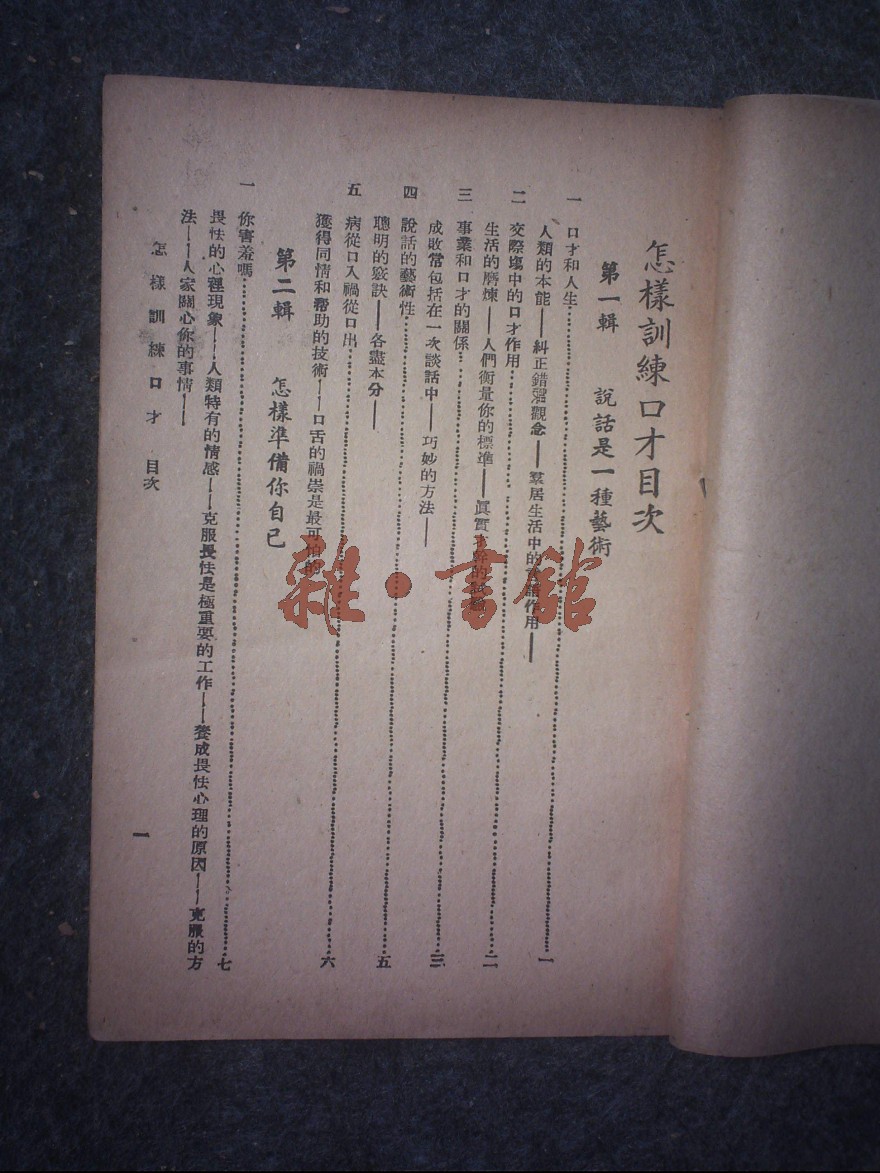 怎樣訓練口才目次
第一輯 說話是一種藝術
一 口才和人生……一
人類的本能——糾正錯誤觀念——羣居生活中的言語作用——
二 交際塲中的口才作用……二
生活的磨煉——人們衡量你的標準——眞實才幹的
三 事業和口才的關係……三
成敗常包括在一次談話中——巧妙的方法——
四 說話的藝術性……五
聰明的竅訣——各盡本分——
五 病從口入禍從口出……六
獲得同情和帮助的技術——口舌的禍祟是最可怕的
第二輯 怎樣準備你自己
一 你害羞嗎……七
畏怯的心裡現象——人類特有的情感——克服畏怯是極重要的工作——養成畏怯心理的原因——克服的方
法——人家關心你的事情——
怎樣訓練口才 目次
一
雜·書館